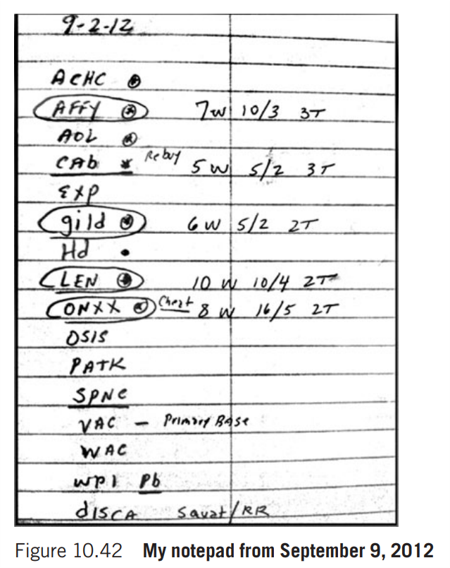 9-2-12
ACHC
AFFY 7W 10/3 3T
AOL
CAb Rebuy 5W 5/2 3T
EXP
gild 6W 5/2 2T
Hd
LEN 10 W 10/4 2T
ONXX Cheat 8 W 16/5 2T
OSIS
PATK
SPNC
VAC - Primary Base
WAC
WPI Pb
dISCA /RR
Figure 10.42 My notepad from September 9, 2012